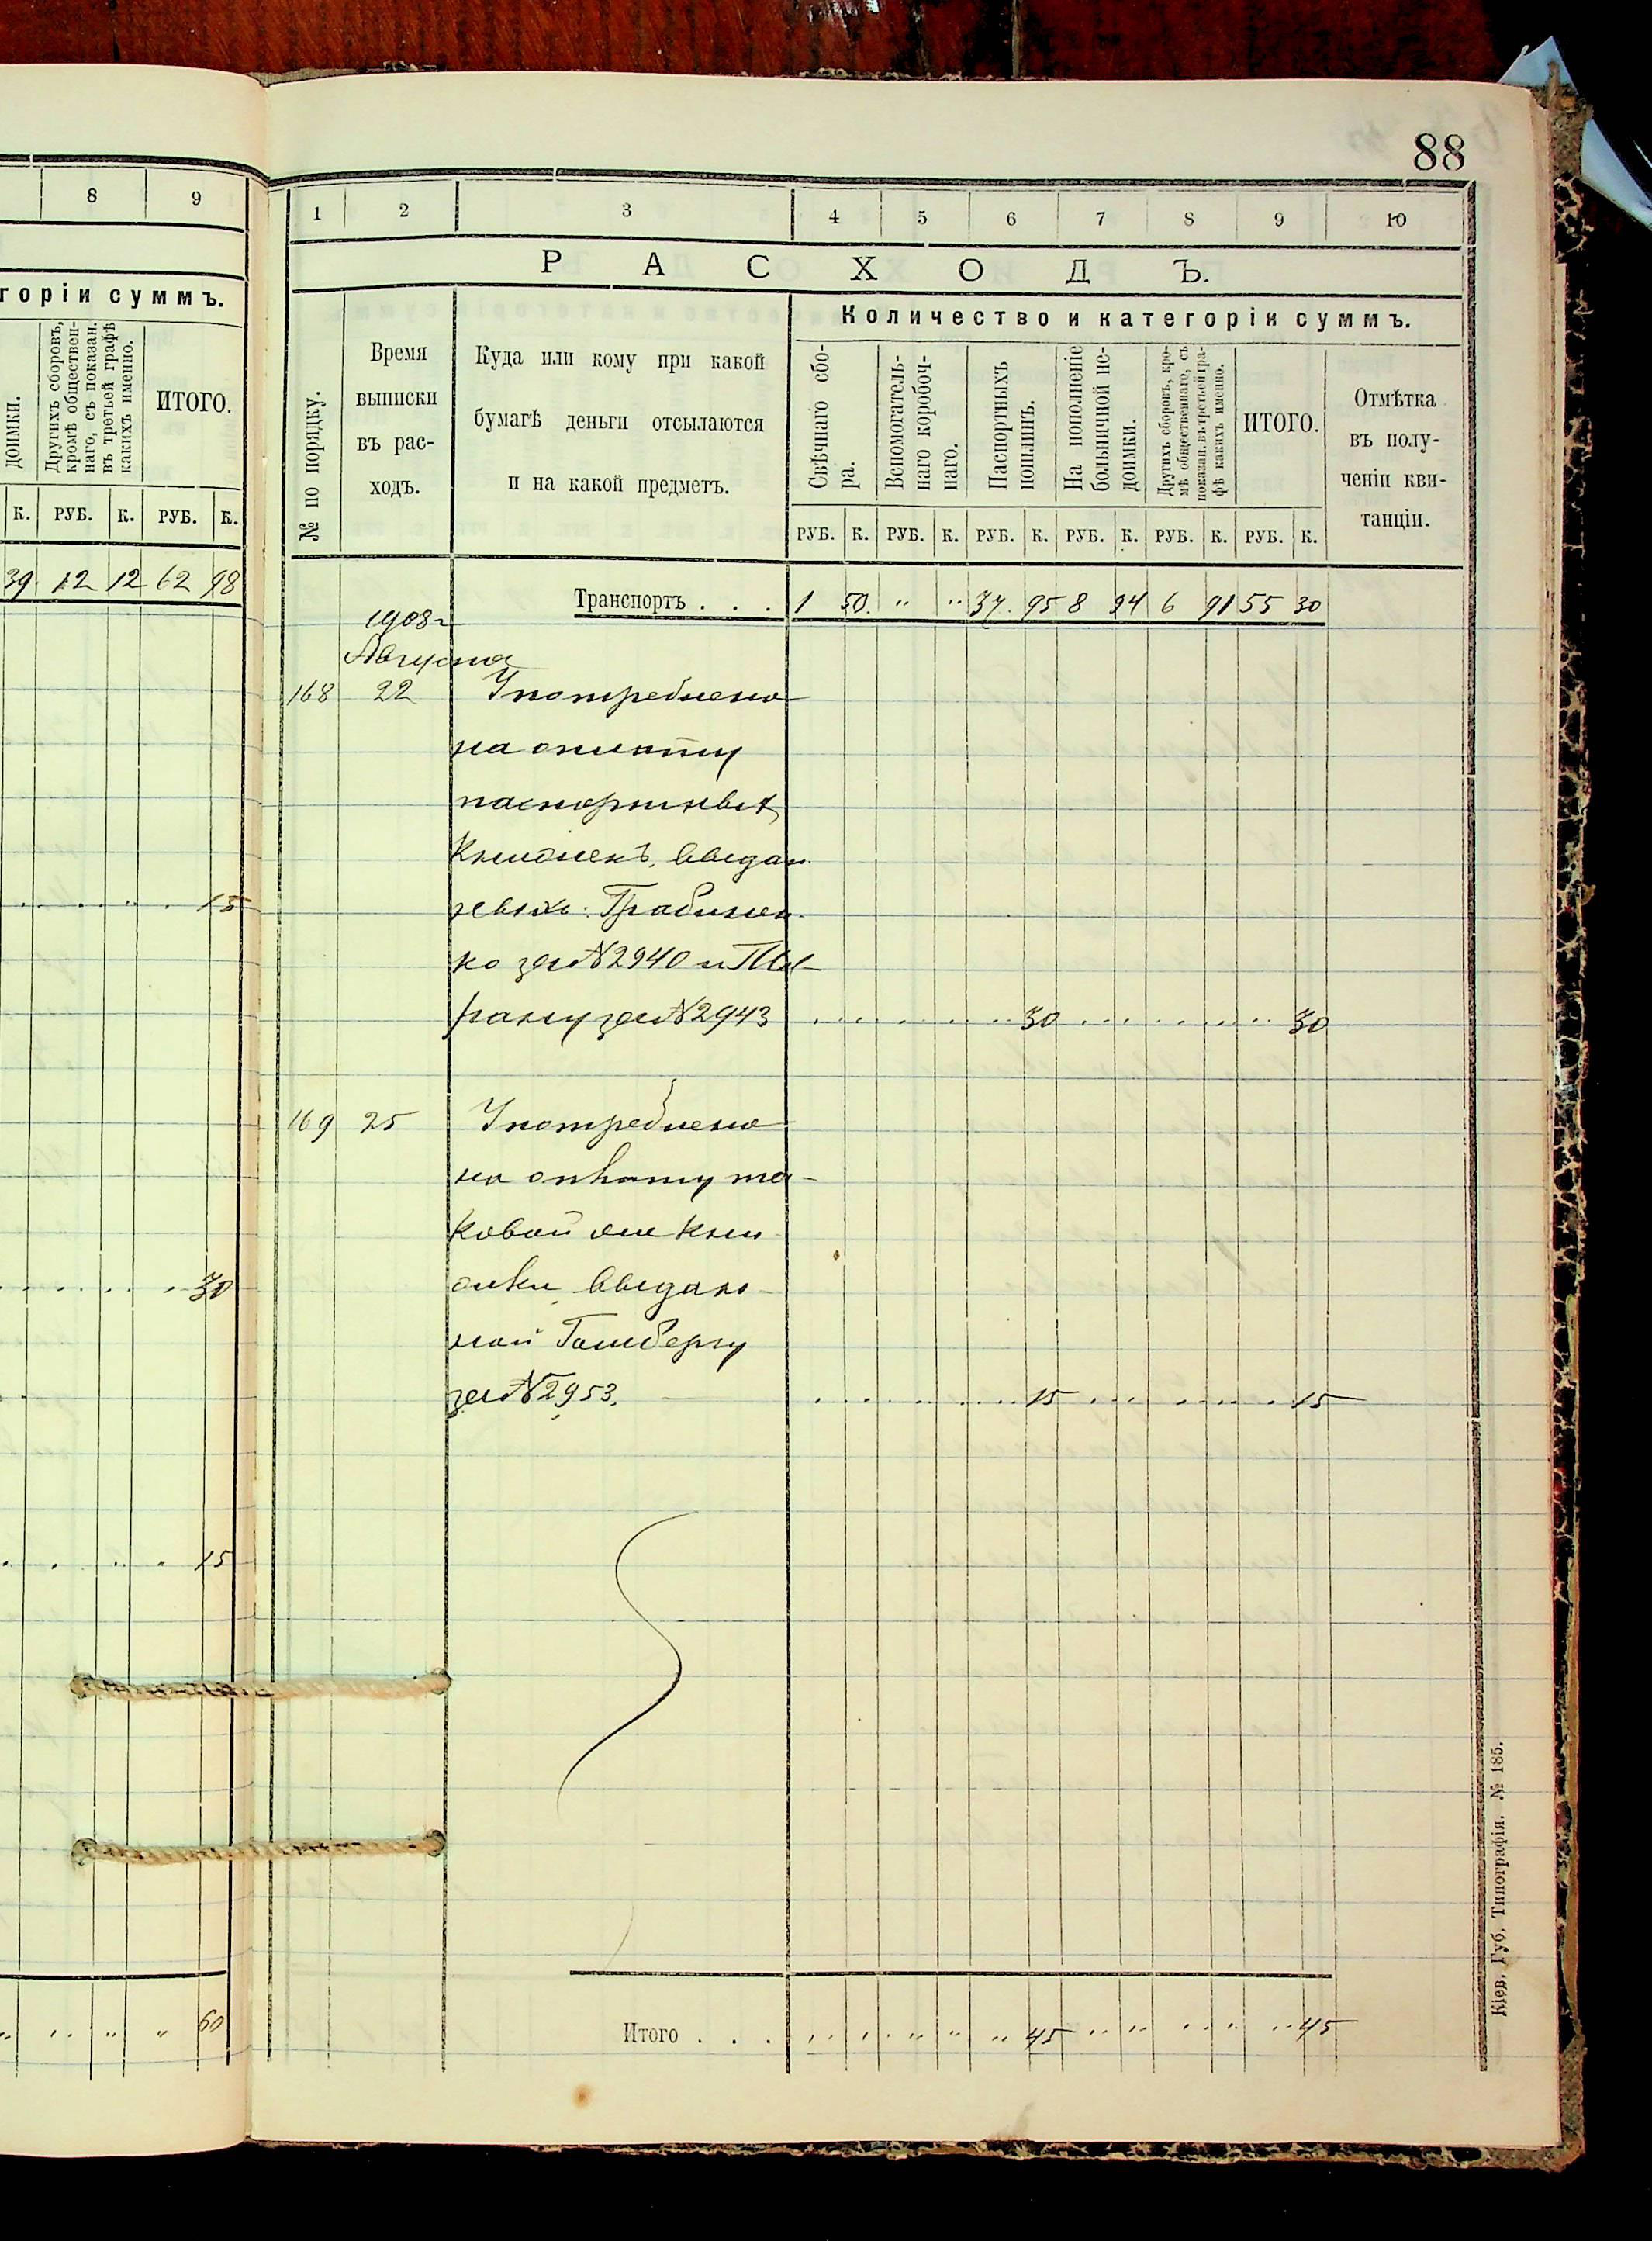 88
8 9
1 2 3 4 5 6 7 8 9 10
РАСХОДЪ.
горіи суммъ.
Количество и категоріи суммъ.
доимки.
Другихъ сборовъ,
кромѣ обществен-
наго, съ показан.
въ третьей графѣ
какихъ именно.
ИТОГО.
К. РУБ. К. РУБ. К.
39 12 12 62 98
15
30
15
60
№ по порядку.
Время
выписки
въ рас-
ходъ.
Куда или кому при какой
бумагѣ деньги отсылаются
и на какой предметъ.
Свѣчнаго сбо-
ра.
Вспомогатель-
наго коробоч-
наго.
Паспортныхъ
пошлинъ.
На пополненіе
больничной не-
доимки.
Другихъ сборовъ, кро-
мѣ общественнаго, съ
показан. въ третьей гра-
фѣ какихъ именно.
ИТОГО.
Отмѣтка
въ полу-
ченіи кви-
танціи.
РУБ. К. РУБ. К. РУБ. К. РУБ. К. РУБ. К. РУБ. К.
Транспортъ . . . 1 50 " " 37 95 8 94 6 91 55 30
1908 г
Августа
168 22 Употреблено
на оплату
паспортныхъ
книжекъ, выдан
ныхъ: Грабинен
ко за № 2940 и
за № 2943 30 30
169 25 Употреблено
на оплату та-
ковой же кни
жки, выдан-
ной Гомбергу
за № 2953. 15 15
Итого . . . " " " " " 45 " " " " " 45
Кіев. Губ. Типографія. № 185.